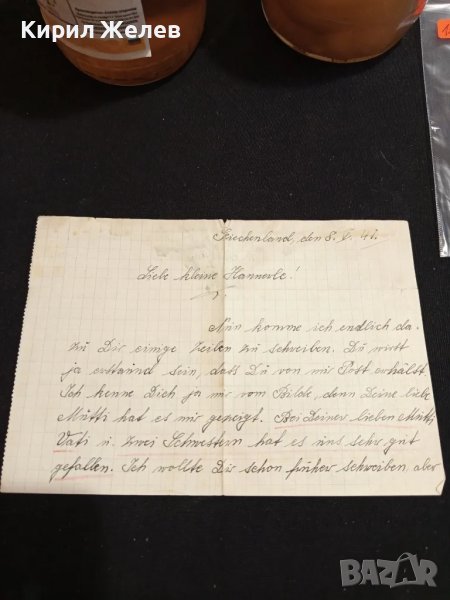 Кирил Желев
Griechenland, den 8. 6. 41.
Liebe kleine Hannerle!
Nun komme ich endlich da-
zu Dir einige Zeilen zu schreiben. Du wirst
ja erstaunt sein, dass Du von mir Post erhälst
Ich kenne Dich ja nur vom Bilde, denn Deine liebe
Mutti hat es mir gezeigt. Bei Deiner lieben Mutti,
Vati u. zwei Schwestern hat es uns sehr gut
gefallen. Ich wollte Dir schon früher schreiben, aber
BAZAR